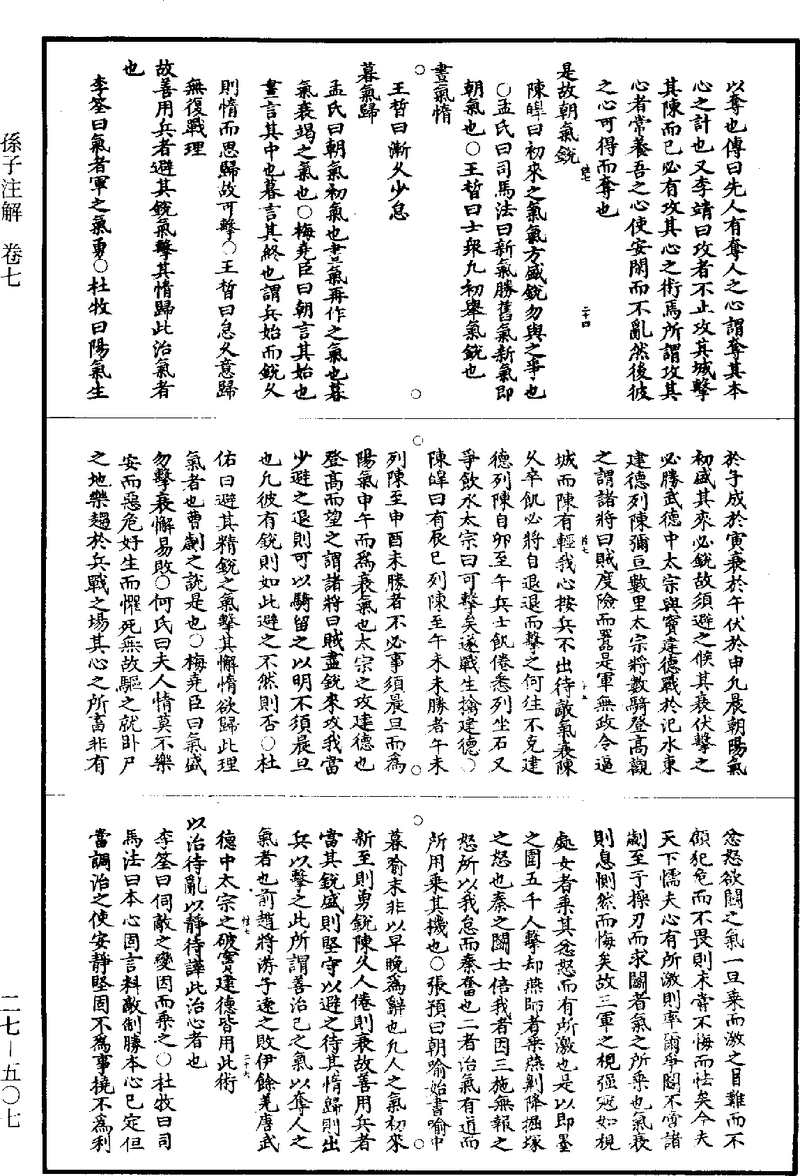 以奪也傳曰先人有奪人之心謂奪其本
心之計也又李靖曰攻者不止攻其城擊
其陳而已必有攻其心之術焉所謂攻其
心者常養吾之心使安閑而不亂然後彼
之心可得而奪也
二十四
是故朝氣銳
陳皥曰初來之氣氣方盛銳勿與之爭也
○孟氏曰司馬法曰新氣勝舊氣新氣即
朝氣也○王晳曰士衆凡初舉氣銳也
晝氣惰
王晳曰漸久少怠
暮氣歸
孟氏曰朝氣初氣也晝氣再作之氣也暮
氣衰竭之氣也○梅堯臣曰朝言其始也
晝言其中也暮言其終也謂兵始而銳久
則惰而思歸故可擊○王晳曰怠久意歸
無復戰理
故善用兵者避其銳氣擊其惰歸此治氣者
也
李筌曰氣者軍之氣勇○杜牧曰陽氣生
於子成於寅衰於午伏於申凡晨朝陽氣
初盛其來必銳故須避之候其衰伏擊之
必勝武德中太宗與竇建德戰於汜水東
建德列陳彌亘數里太宗將數騎登高觀
之謂諸將曰賊度險而囂是軍無政令逼
城而陳有輕我心按兵不出待敵氣衰陳
久卒飢必將自退退而擊之何往不克建
德列陳自卯至午兵士飢倦悉列坐右又
爭飲水太宗曰可擊矣遂戰生擒建德○
陳皥曰有辰巳列陳至午未未勝者午未
列陳至申酉未勝者不必事須晨旦而爲
陽氣申午而爲衰氣也太宗之攻建德也
登高而望之謂諸將曰賊盡銳來攻我當
少避之退則可以騎留之以明不須晨旦
也凡彼有銳則如此避之不然則否○杜
佑曰避其精銳之氣擊其懈惰欲歸此理
氣者也曹劌之說是也○梅堯臣曰氣盛
勿擊衰懈易敗○何氏曰夫人情莫不樂
安而惡危好生而懼死無故驅之就卧尸
之地樂趨於兵戰之場其心之所畜非有
忿怒欲鬭之氣一旦乗而激之冒難而不
顧犯危而不畏則未甞不悔而怯矣今夫
天下懦夫心有所激則率爾爭鬭不啻諸
劌至于操刃而求鬭者氣之所乗也氣衰
則息惻然而悔矣故三軍之視强冦如視
處女者乗其忿怒而有所激也是以即墨
之圍五千人擊却燕師者乗燕劓降掘塚
之怒也秦之鬭士倍我者因三施無報之
怒所以我怠而秦奮也二者治氣有道而
所用乗其機也○張預曰朝喻始晝喻中
暮喻末非以早晚爲辭也凡人之氣初來
新至則勇銳陳久人倦則衰故善用兵者
當其銳盛則堅守以避之待其惰歸則出
兵以擊之此所謂善治己之氣以奪人之
氣者也前趙將游子遠之敗伊餘羌唐武
德中太宗之破竇建德皆用此術
二十六
以治待亂以靜待譁此治心者也
李筌曰伺敵之變因而乗之○杜牧曰司
馬法曰本心固言料敵制勝本心已定但
當調治之使安靜堅固不爲事撓不爲利
孫子注解 卷七
二七—五〇七